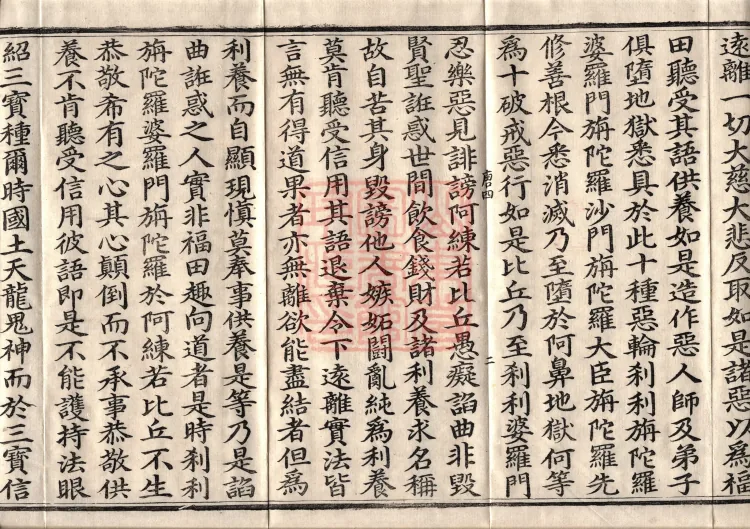 遠離一切大慈大悲反取如是諸惡以爲福
田聽受其語供養如是造作惡人師及弟子
俱墮地獄悉具於此十種惡輪刹利旃陀羅
婆羅門旃陀羅沙門旃陀羅大臣旃陀羅先
修善根今悉消滅乃至墮於阿鼻地獄何等
爲十破戒惡行如是比丘乃至刹利婆羅門
唐四
二
忍樂惡見誹謗阿練若比丘愚癡諂曲非毀
賢聖誑惑世間飲食錢財及諸利養求名稱
故自苦其身毀謗他人嫉妬鬪亂純爲利養
莫肯聽受信用其語退棄令下遠離實法皆
言無有得道果者亦無離欲能盡結者但爲
利養而自顯現愼莫奉事供養是等乃是諂
曲誑惑之人實非福田趣向道者是時刹利
旃陀羅婆羅門旃陀羅於阿練若比丘不生
恭敬希有之心其心顛倒而不承事恭敬供
養不肯聽受信用彼語即是不能護持法眼
紹三寶種爾時國土天龍鬼神而於三寶信